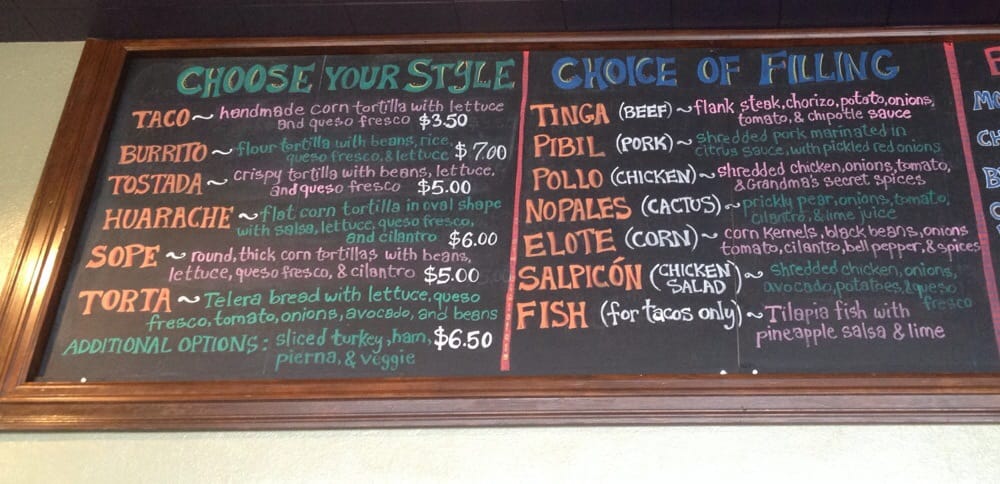 CHOOSE YOUR STYLE
TACO ~ handmade corn tortilla with lettuce
and queso fresco $3.50
BURRITO ~ flour tortilla with beans, rice,
queso fresco, & lettuce $7.00
TOSTADA ~ crispy tortilla with beans, lettuce,
and queso fresco $5.00
HUARACHE ~ flat corn tortilla in oval shape
with salsa, lettuce, queso fresco,
and cilantro $6.00
SOPE ~ round, thick corn tortillas with beans,
lettuce, queso fresco, & cilantro $5.00
TORTA ~ Telera bread with lettuce, queso
fresco, tomato, onions, avocado, and beans
ADDITIONAL OPTIONS: sliced turkey, ham, $6.50
pierna, & veggie
CHOICE OF FILLING
TINGA (BEEF) ~ flank steak, chorizo, potato, onions,
tomato, & chipotle sauce
PIBIL (PORK) ~ shredded pork marinated in
citrus sauce, with pickled red onions
POLLO (CHICKEN) ~ shredded chicken, onions, tomato,
& Grandma's secret spices
NOPALES (CACTUS) ~ prickly pear, onions, tomato,
cilantro, & lime juice
ELOTE (CORN) ~ corn kernels, black beans, onions
tomato, cilantro, bell pepper, & spices
SALPICÓN (CHICKEN SALAD) ~ shredded chicken, onions,
avocado, potatoes, & queso
fresco
FISH (for tacos only) ~ Tilapia fish with
pineapple salsa & lime